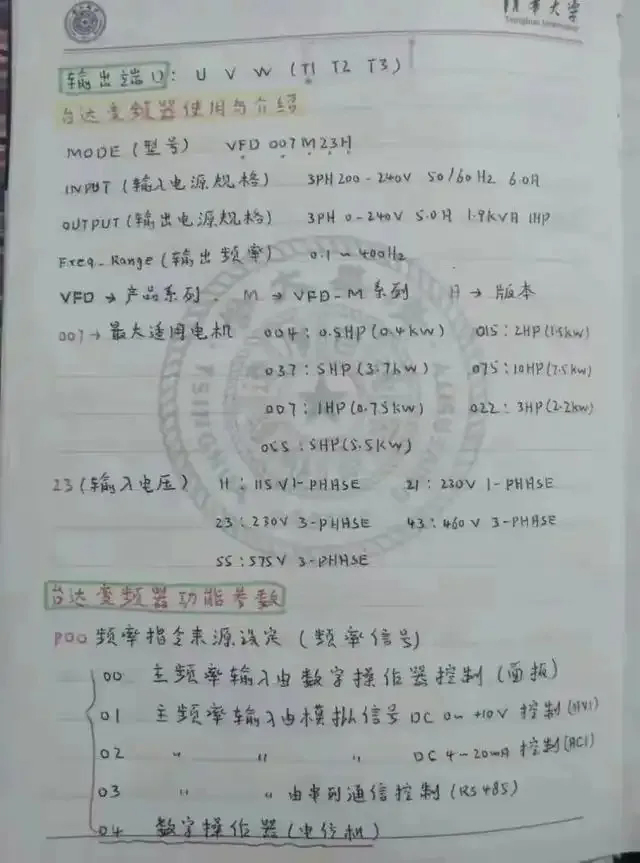 清华大学
Tsinghua University
输出端口: U V W (T1 T2 T3)
台达变频器使用与介绍
MODE (型号) VFD 007M23H
INPUT (输入电源规格) 3PH 200-240V 50/60Hz 6.0A
OUTPUT (输出电源规格) 3PH 0-240V 5.0A 1.9KVA 1HP
Freq. Range (输出频率) 0.1~400Hz
VFD → 产品系列. M → VFD-M系列 H → 版本
007→最大适用电机 004: 0.5HP(0.4kw) 015: 2HP(1.5kw)
037: 5HP(3.7kw) 075: 10HP(7.5kw)
007: 1HP(0.75kw) 022: 3HP(2.2kw)
055: 5HP(5.5kw)
23 (输入电压) 11: 115V 1-PHASE 21: 230V 1-PHASE
23: 230V 3-PHASE 43: 460V 3-PHASE
55: 575V 3-PHASE
台达变频器功能参数
P00 频率指令来源设定 (频率信号)
00 主频率输入由数字操作器控制 (面板)
01 主频率输入由模拟信号 DC 0~+10V 控制 (AVI)
02 〃 〃 〃 DC 4~20mA 控制 (ACI)
03 〃 〃 由串列通信控制 (RS485)
04 数字操作器 (电位机)